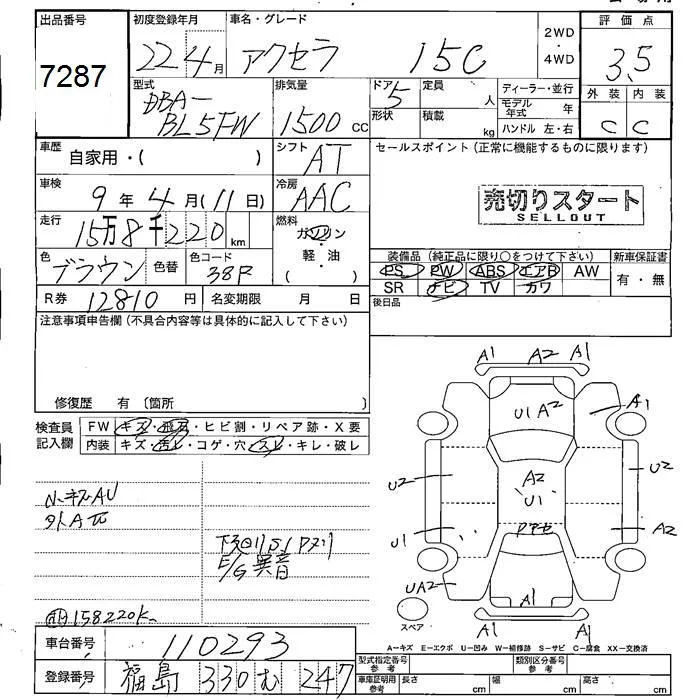 出品番号 初度登録年月 車名・グレード 2WD・4WD 評価点
7287 22 4月 アクセラ 15C 3.5
型式 DBA-BL5FW 排気量 1500cc ドア 5 形状 定員 人 積載 kg ディーラー・並行 モデル年式 年 ハンドル 左・右 外装 内装 C C
車歴 自家用・( ) シフト AT セールスポイント(正常に機能するものに限ります)
車検 9年4月(11日) 冷房 AAC
売切りスタート
SELLOUT
走行 15万8千220km 燃料 ガソリン・軽・油 ( )
色 ブラウン 色替 色コード 38P
装備品(純正品に限り○をつけて下さい) 新車保証書
PS PW ABS エアB AW 有・無
SR ナビ TV カワ
R券 12810円 名変期限 月 日 後日品
注意事項申告欄(不具合内容等は具体的に記入して下さい)
修復歴 有〔箇所 〕
検査員記入欄 FW キズ・飛石・ヒビ割・リペア跡・X要
内装 キズ・汚レ・コゲ・穴・スレ・キレ・破レ
小キズAU
下回りS1
E/G異音
158220K
A1 A2 A1
U1 A2 A1
U2 A2 U1 U2
U1 A2
UA2 A1
スペア A1 A1
A-キズ E-エクボ U-凹み W-補修跡 S-サビ C-腐食 XX-交換済
車台番号 110293
登録番号 福島 330 む 247
型式指定番号参考 類別区分番号参考
車庫証明用参考 長さ cm 幅 cm 高さ cm